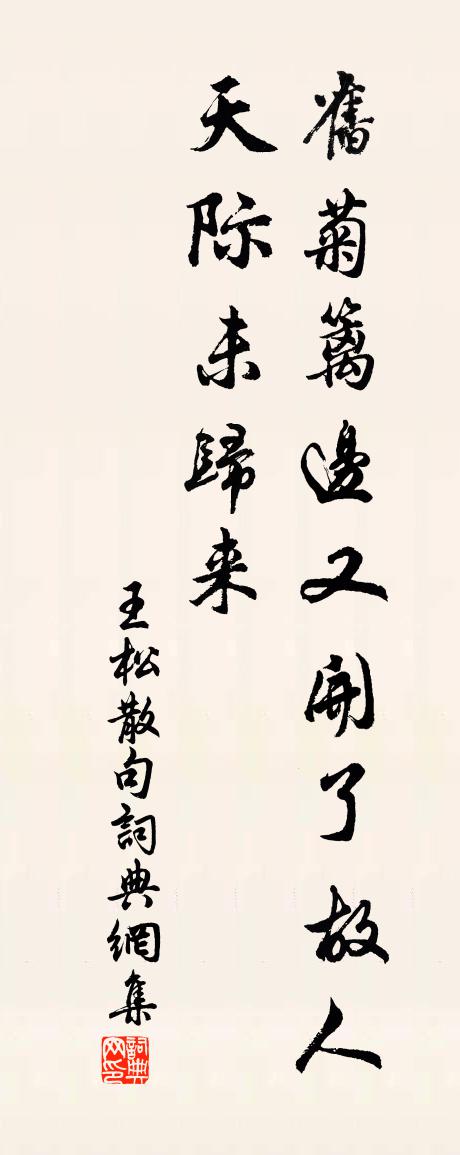 舊菊篱邊又開了故人
天际未歸来
王松散句詞典網集
詞典网印